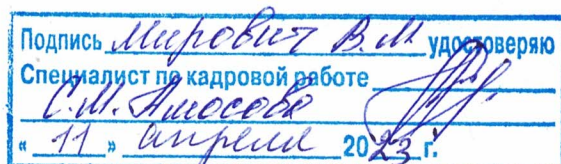 Подпись Мирович В.М. удостоверяю
Специалист по кадровой работе
С.М. Амосова
« 11 » апреля 2023 г.